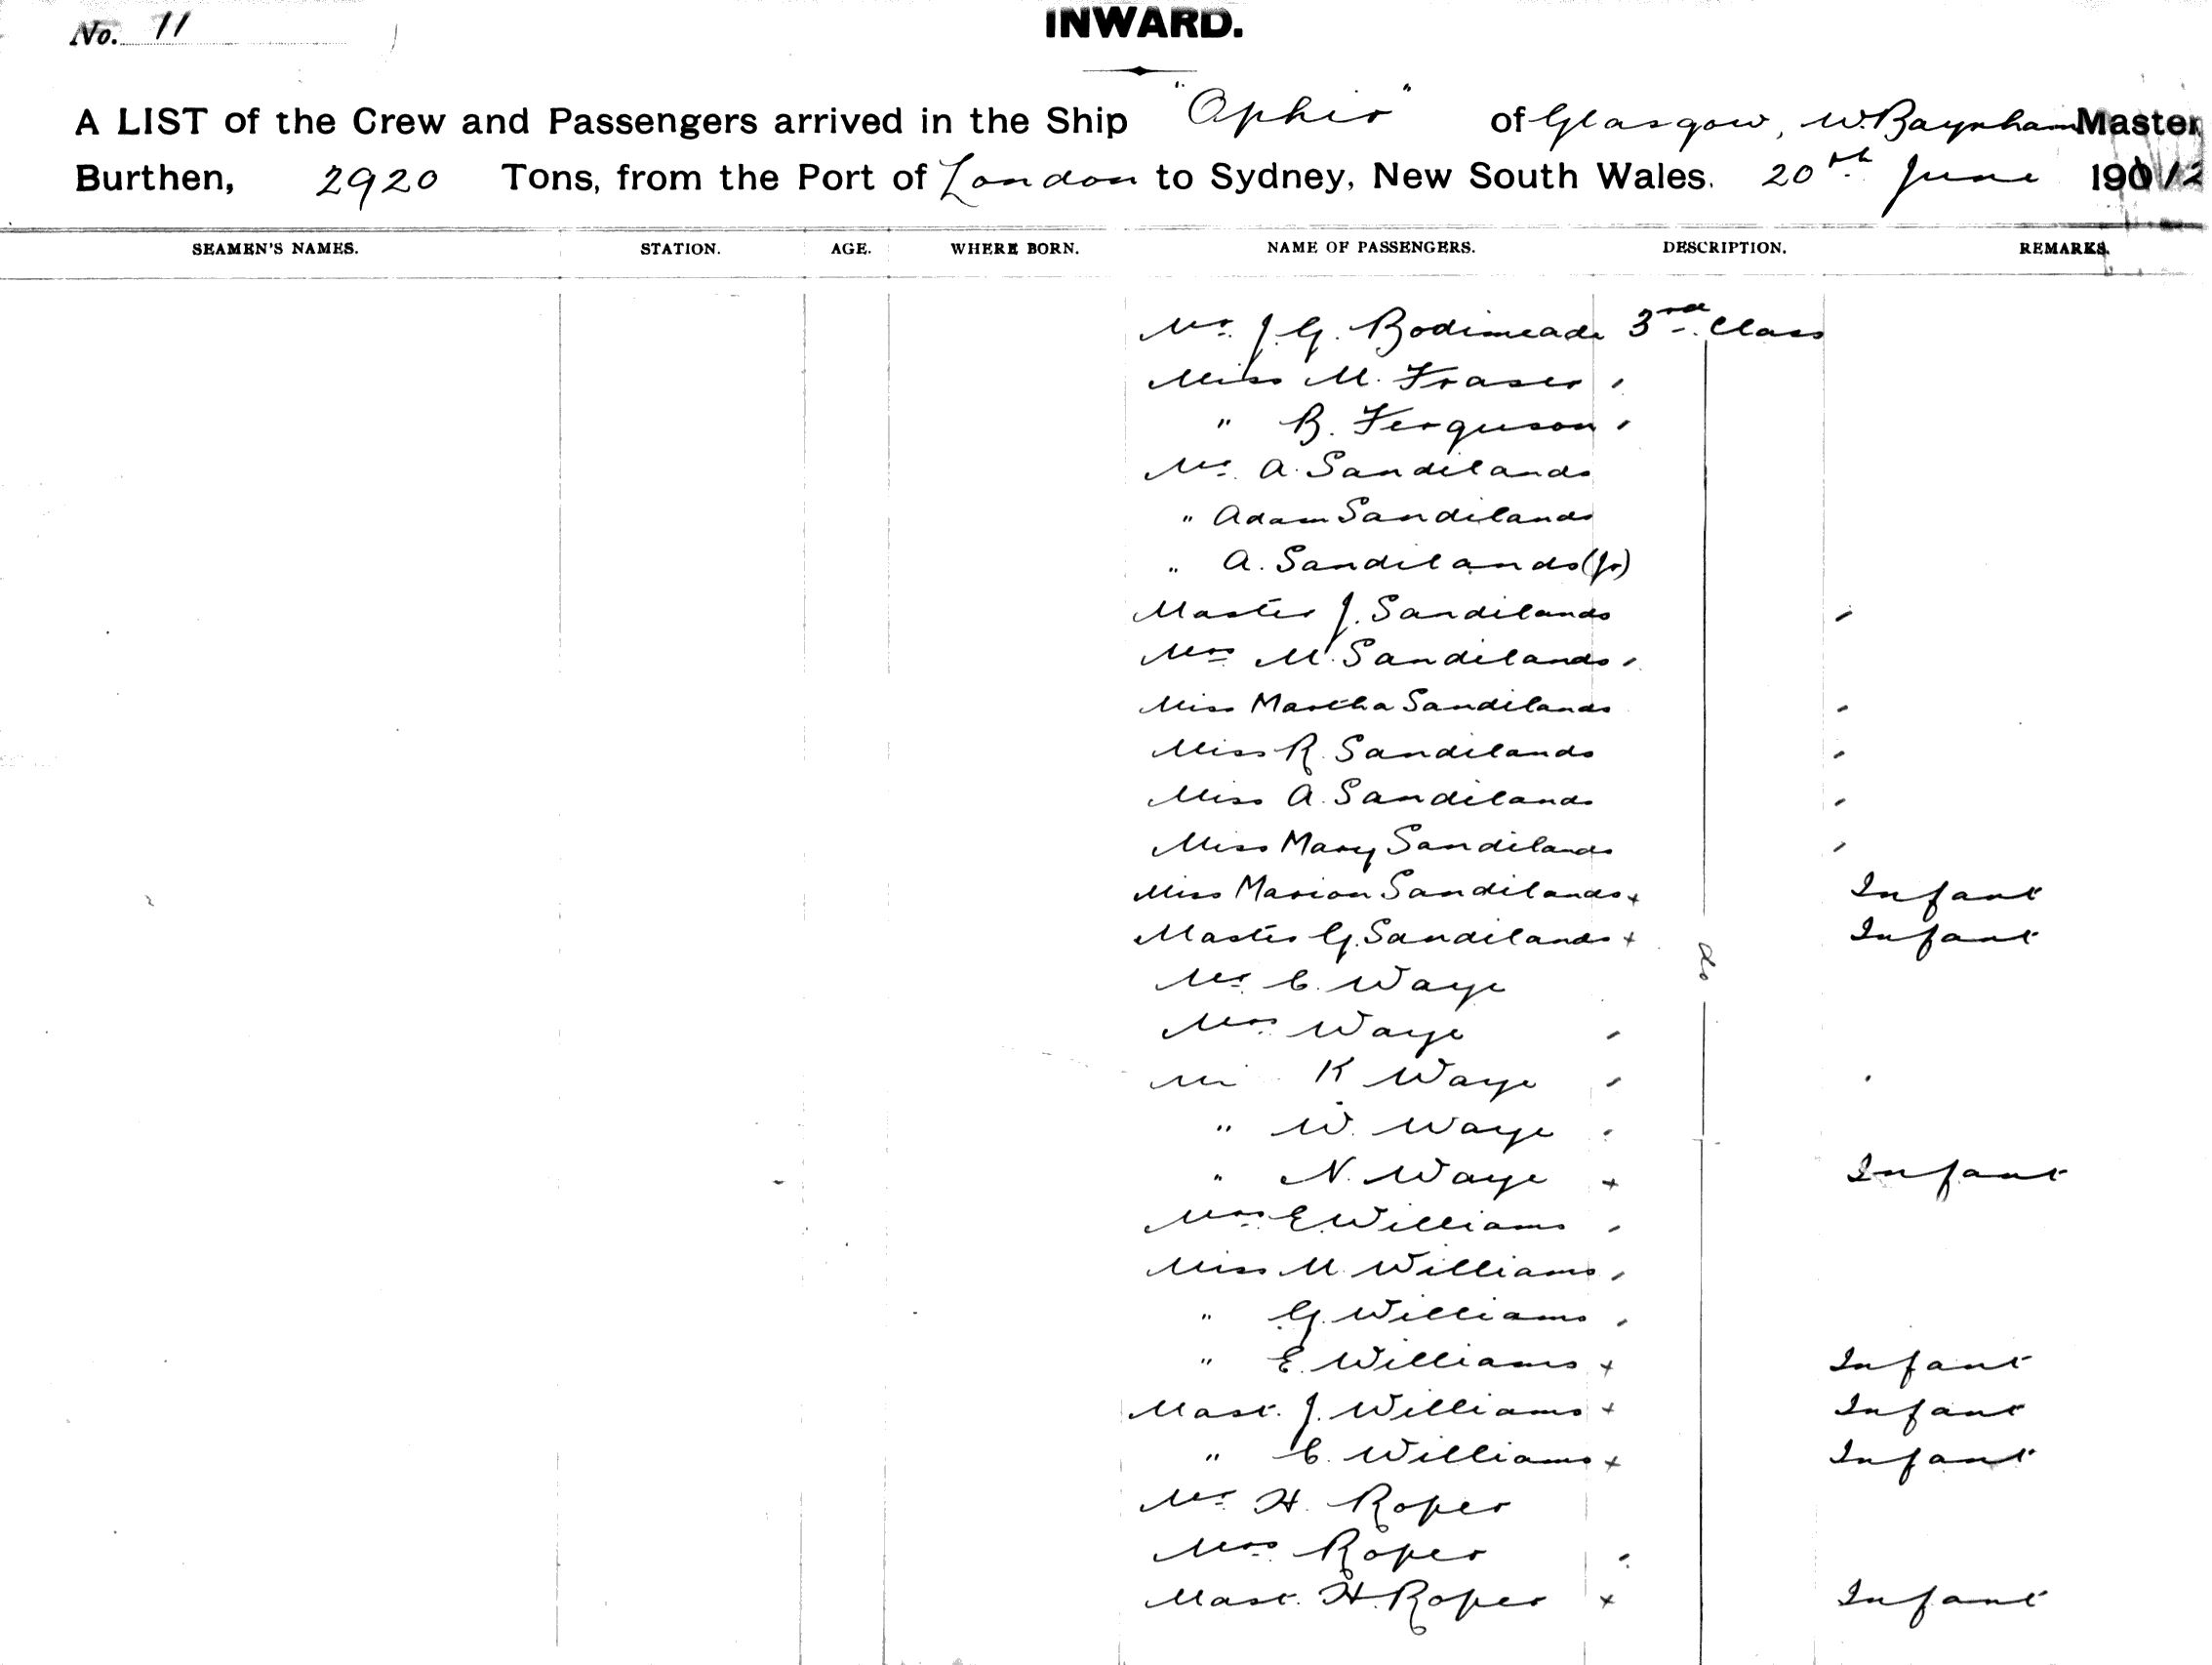 No. 11
INWARD.
A LIST of the Crew and Passengers arrived in the Ship "Ophir" of Glasgow, W. Baynham Master
Burthen, 2920 Tons, from the Port of London to Sydney, New South Wales. 20th June 1912
SEAMEN'S NAMES. STATION. AGE. WHERE BORN. NAME OF PASSENGERS. DESCRIPTION. REMARKS.
Mr. J. G. Bodimeade 3rd Class
Miss M. Fraser
" B. Ferguson
Mr. A. Sandilands
" Adam Sandilands
" A. Sandilands (Jr)
Master J. Sandilands
Mrs M. Sandilands
Miss Martha Sandilands
Miss R. Sandilands
Miss A. Sandilands
Miss Mary Sandilands
Miss Marion Sandilands + Infant
Master G. Sandilands + Infant
do
Mr. C. Waye
Mrs. Waye
K Waye
" W. Waye
" N. Waye + Infant
Mrs. E. Williams
Miss M. Williams
" G. Williams
" E. Williams + Infant
Mast. J. Williams + Infant
" C. Williams + Infant
Mr. H. Roper
Mrs. Roper
Mast. H. Roper + Infant